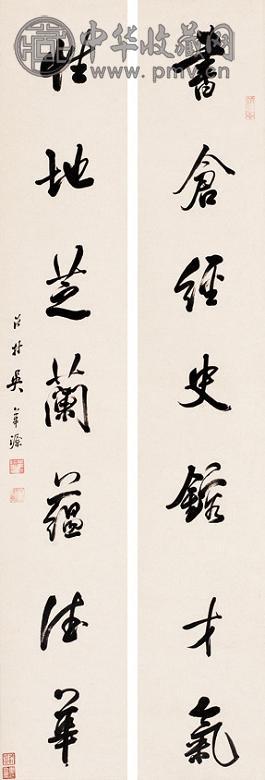 中华收藏网
www.pmv.cn
書倉經史鎔才氣
性地芝蘭蘊德華
吳